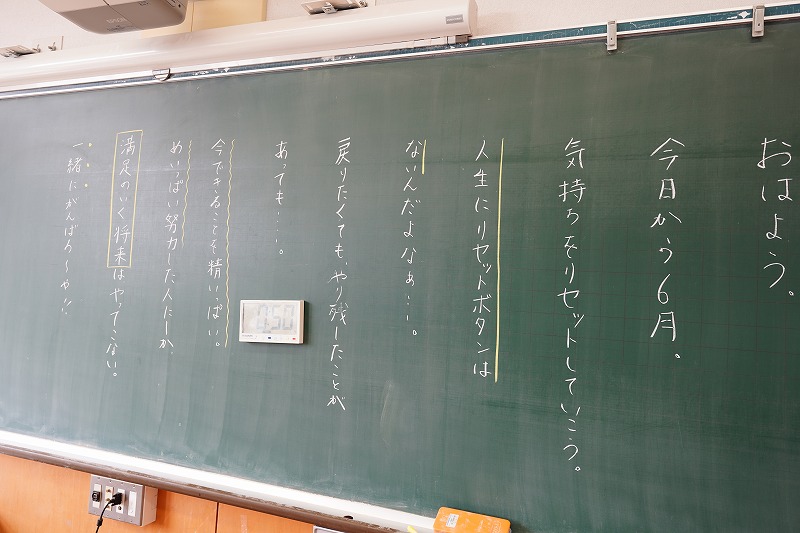 おはよう。
今日から6月。
気持ちをリセットしていこう。
人生にリセットボタンは
ないんだよなぁ…。
戻りたくても、やり残したことが
あっても…。
今できることを精いっぱい。
めいっぱい努力した人にしか、
満足のいく将来はやってこない。
一緒にがんばろ〜や!!